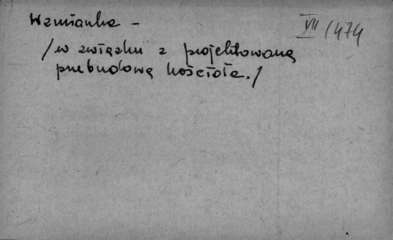 Wzmianka –
VII/474
/w związku z projektowaną
przebudową kościoła./